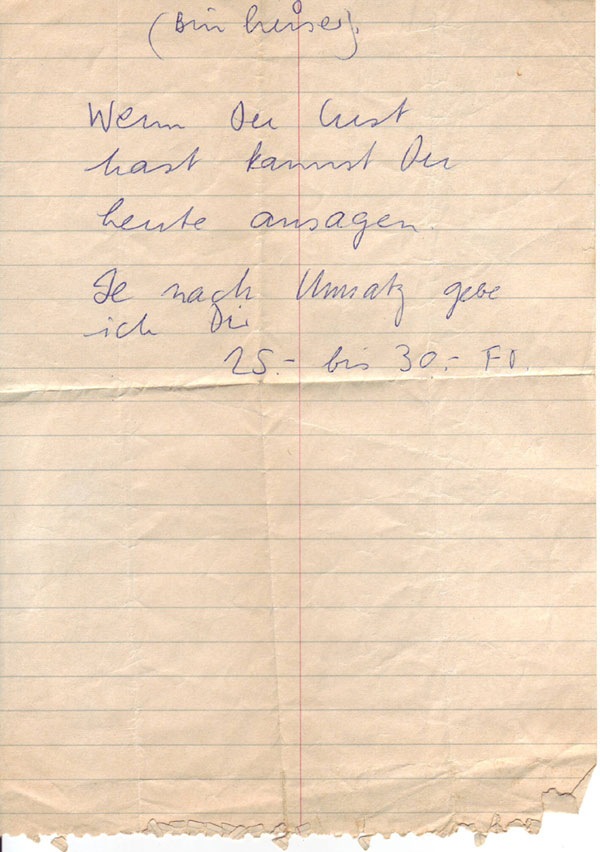 (Bin heiser).
Wenn Du Lust
hast kannst Du
heute ansagen.
Je nach Umsatz gebe
ich Dir
25.- bis 30.- Fr.